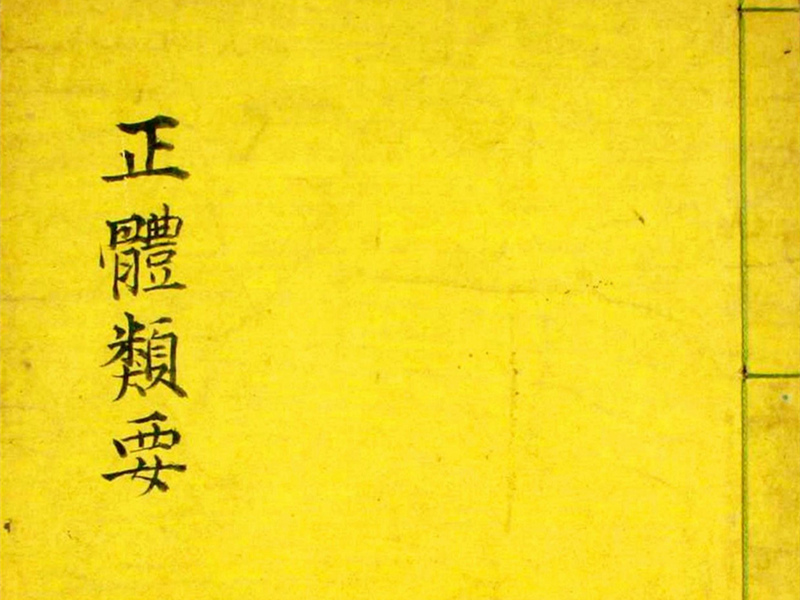 正體類要